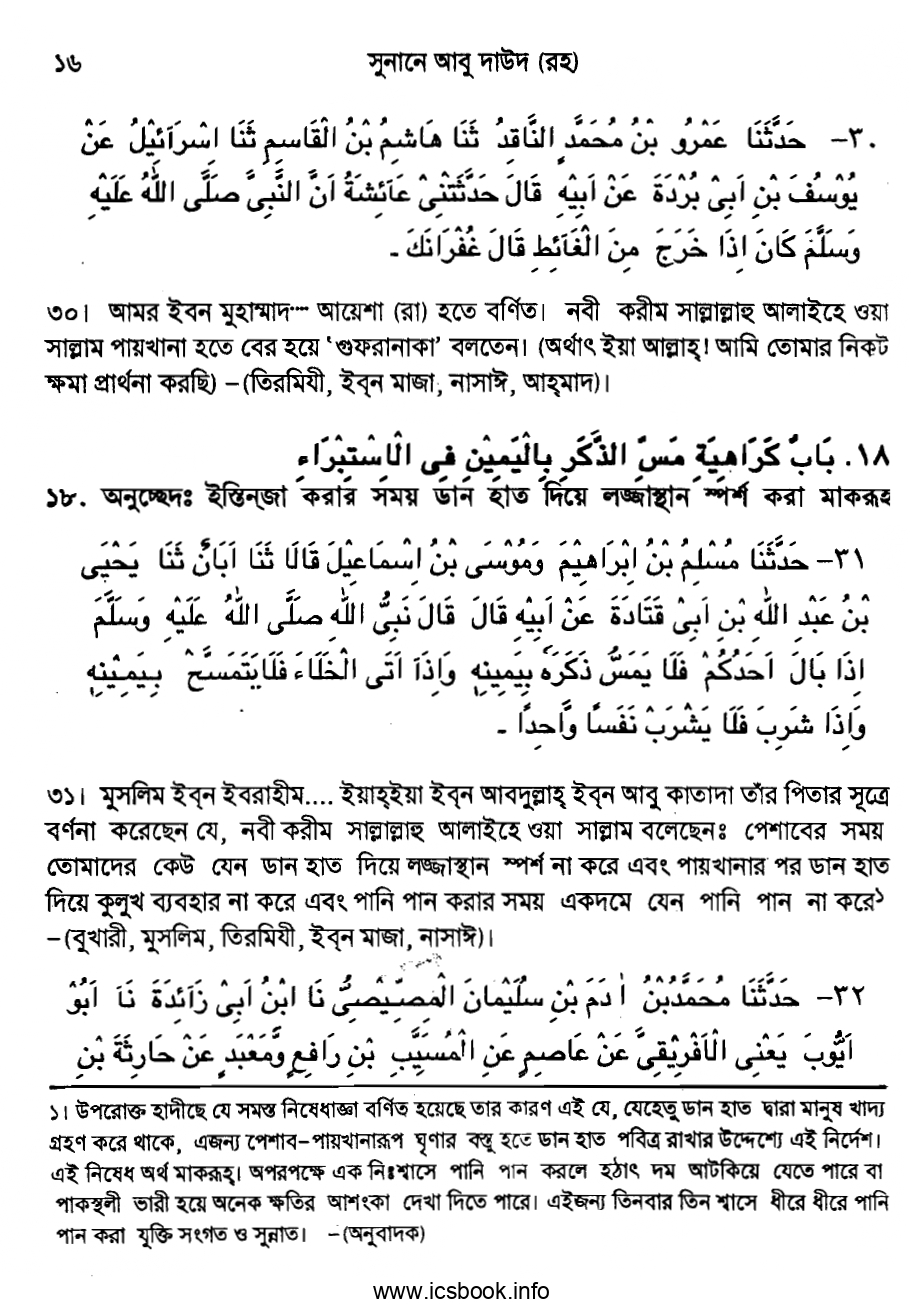 ১৬ সুনানে আবু দাউদ (রহ)
٣٠- حَدَّثَنَا عَمْرُو بْنُ مُحَمَّدٍ النَّاقِدُ ثَنَا هَاشِمُ بْنُ الْقَاسِمِ ثَنَا اِسْرَائِيْلُ عَنْ
يُوْسُفَ بْنِ اَبِىْ بُرْدَةَ عَنْ اَبِيْهِ قَالَ حَدَّثَتْنِىْ عَائِشَةُ اَنَّ النَّبِىَّ صَلَّى اللّٰهُ عَلَيْهِ
وَسَلَّمَ كَانَ اِذَا خَرَجَ مِنَ الْغَائِطِ قَالَ غُفْرَانَكَ ـ
৩০। আমর ইবন মুহাম্মাদ---- আয়েশা (রা) হতে বর্ণিত। নবী করীম সাল্লাল্লাহু আলাইহে ওয়া
সাল্লাম পায়খানা হতে বের হয়ে ‘গুফরানাকা’ বলতেন। (অর্থাৎ ইয়া আল্লাহ্! আমি তোমার নিকট
ক্ষমা প্রার্থনা করছি) –(তিরমিযী, ইব্‌ন মাজা, নাসাঈ, আহ্‌মাদ)।
١٨. بَابُ كَرَاهِيَةِ مَسِّ الذَّكَرِ بِالْيَمِيْنِ فِى الْاِسْتِبْرَاءِ
১৮. অনুচ্ছেদঃ ইস্তিন্‌জা করার সময় ডান হাত দিয়ে লজ্জাস্থান স্পর্শ করা মাকরূহ
٣١- حَدَّثَنَا مُسْلِمُ بْنُ اِبْرَاهِيْمَ وَمُوْسَى بْنُ اِسْمَاعِيْلَ قَالَا ثَنَا اَبَانٌ ثَنَا يَحْيَى
بْنُ عَبْدِ اللّٰهِ بْنِ اَبِىْ قَتَادَةَ عَنْ اَبِيْهِ قَالَ قَالَ نَبِىُّ اللّٰهِ صَلَّى اللّٰهُ عَلَيْهِ وَسَلَّمَ
اِذَا بَالَ اَحَدُكُمْ فَلَا يَمَسَّ ذَكَرَهُ بِيَمِيْنِهِ وَاِذَا اَتَى الْخَلَاءَ فَلَايَتَمَسَّحْ بِيَمِيْنِهِ
وَاِذَا شَرِبَ فَلَا يَشْرَبْ نَفَسًا وَّاحِدًا ـ
৩১। মুসলিম ইব্‌ন ইবরাহীম.... ইয়াহ্‌ইয়া ইব্‌ন আবদুল্লাহ্ ইব্‌ন আবু কাতাদা তাঁর পিতার সূত্রে
বর্ণনা করেছেন যে, নবী করীম সাল্লাল্লাহু আলাইহে ওয়া সাল্লাম বলেছেনঃ পেশাবের সময়
তোমাদের কেউ যেন ডান হাত দিয়ে লজ্জাস্থান স্পর্শ না করে এবং পায়খানার পর ডান হাত
দিয়ে কুলুখ ব্যবহার না করে এবং পানি পান করার সময় একদমে যেন পানি পান না করে১
–(বুখারী, মুসলিম, তিরমিযী, ইব্‌ন মাজা, নাসাঈ)।
٣٢- حَدَّثَنَا مُحَمَّدُبْنُ اٰدَمَ بْنِ سُلَيْمَانَ الْمِصِّيْصِىُّ نَا ابْنُ اَبِىْ زَائِدَةَ نَا اَبُوْ
اَيُّوبَ يَعْنِى الْاَفْرِيْقِىَّ عَنْ عَاصِمٍ عَنِ الْمُسَيَّبِ بْنِ رَافِعٍ وَّمَعْبَدٍ عَنْ حَارِثَةَ بْنِ
১। উপরোক্ত হাদীছে যে সমস্ত নিষেধাজ্ঞা বর্ণিত হয়েছে তার কারণ এই যে, যেহেতু ডান হাত দ্বারা মানুষ খাদ্য
গ্রহণ করে থাকে, এজন্য পেশাব-পায়খানারূপ ঘৃণার বস্তু হতে ডান হাত পবিত্র রাখার উদ্দেশ্যে এই নির্দেশ।
এই নিষেধ অর্থ মাকরূহ্। অপরপক্ষে এক নিঃশ্বাসে পানি পান করলে হঠাৎ দম আটকিয়ে যেতে পারে বা
পাকস্থলী ভারী হয়ে অনেক ক্ষতির আশংকা দেখা দিতে পারে। এইজন্য তিনবার তিন শ্বাসে ধীরে ধীরে পানি
পান করা যুক্তি সংগত ও সুন্নাত। –(অনুবাদক)
www.icsbook.info